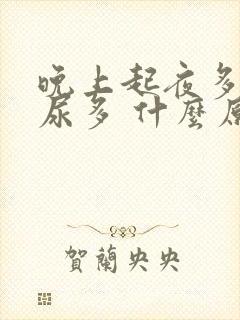 晚上起夜多
尿多 什麼原
賀蘭央央